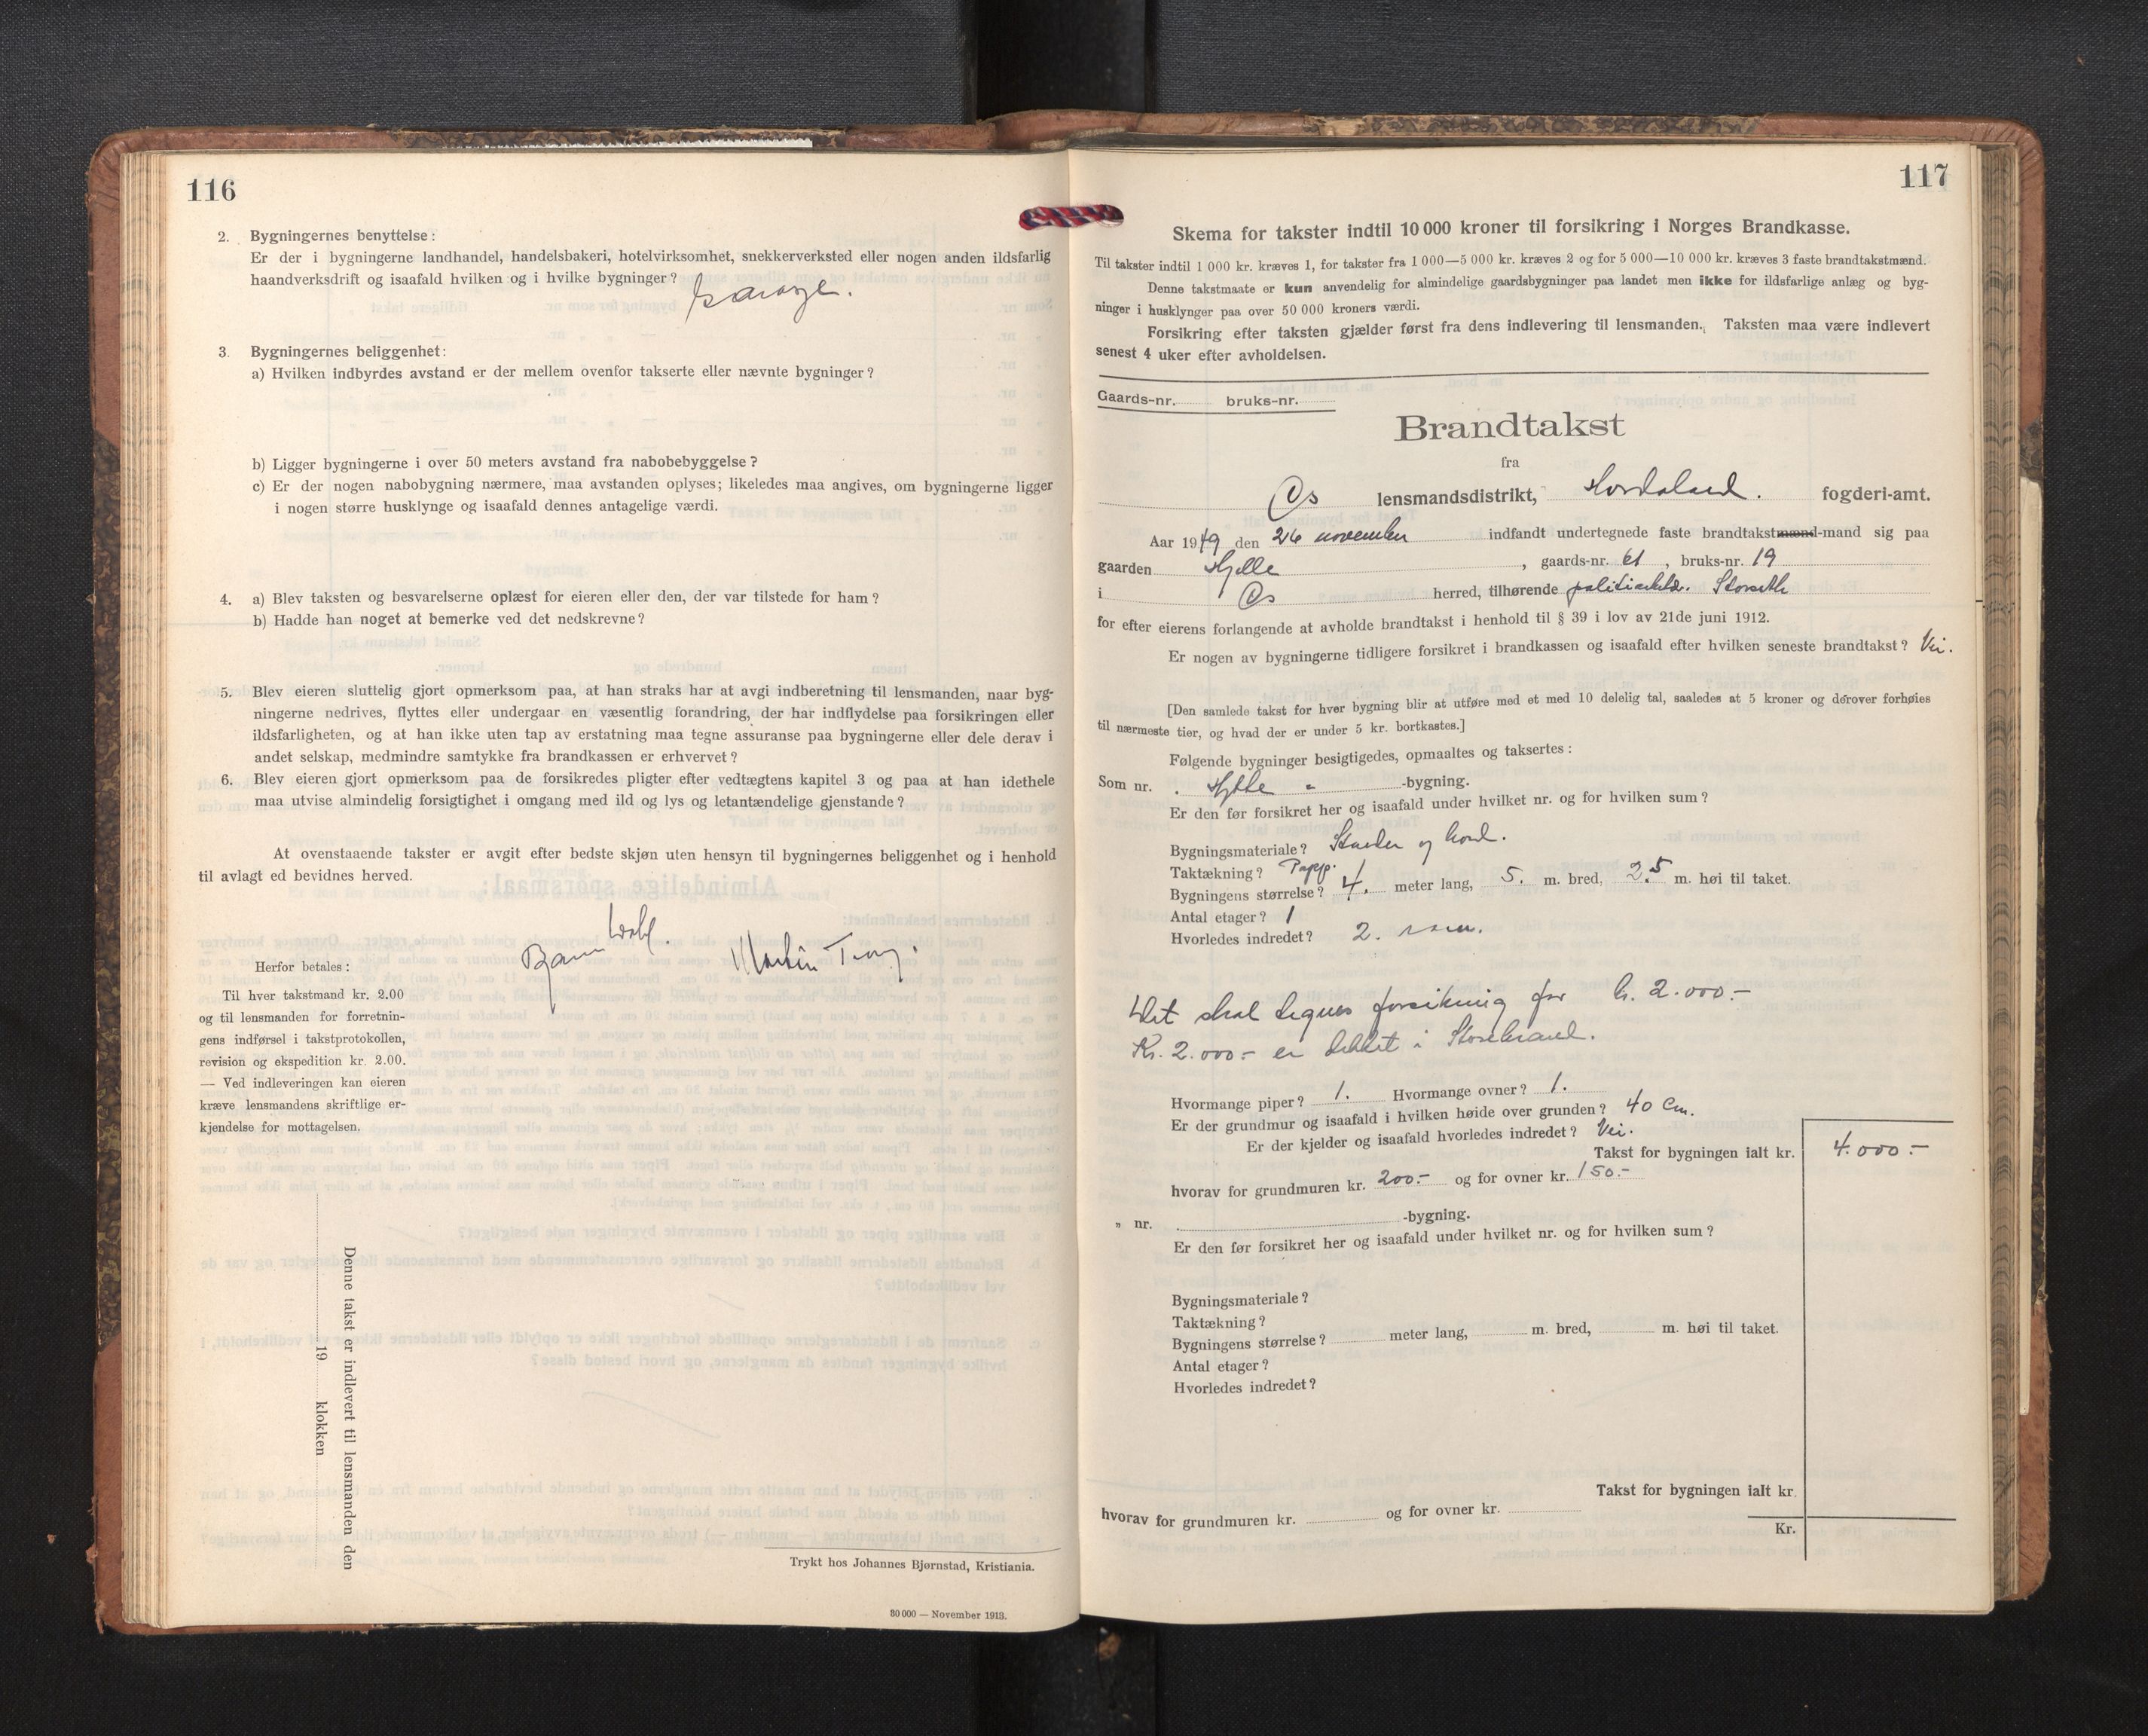 116
2. Bygningernes benyttelse:
Er der i bygningerne landhandel, handelsbakeri, hotelvirksomhet, snekkerverksted eller nogen anden ildsfarlig
haandverksdrift og isaafald hvilken og i hvilke bygninger? Garage.
3. Bygningernes beliggenhet:
a) Hvilken indbyrdes avstand er der mellem ovenfor takserte eller nævnte bygninger?
b) Ligger bygningerne i over 50 meters avstand fra nabobebyggelse?
c) Er der nogen nabobygning nærmere, maa avstanden oplyses; likeledes maa angives, om bygningerne ligger
i nogen større husklynge og isaafald dennes antagelige værdi.
4. a) Blev taksten og besvarelserne oplæst for eieren eller den, der var tilstede for ham?
b) Hadde han noget at bemerke ved det nedskrevne?
5. Blev eieren sluttelig gjort opmerksom paa, at han straks har at avgi indberetning til lensmanden, naar byg-
ningerne nedrives, flyttes eller undergaar en væsentlig forandring, der har indflydelse paa forsikringen eller
ildsfarligheten, og at han ikke uten tap av erstatning maa tegne assuranse paa bygningerne eller dele derav i
andet selskap, medmindre samtykke fra brandkassen er erhvervet?
6. Blev eieren gjort opmerksom paa de forsikredes pligter efter vedtægtens kapitel 3 og paa at han idethele
maa utvise almindelig forsigtighet i omgang med ild og lys og letantændelige gjenstande?
At ovenstaaende takster er avgit efter bedste skjøn uten hensyn til bygningernes beliggenhet og i henhold
til avlagt ed bevidnes herved.
Martin
Herfor betales:
Til hver takstmand kr. 2.00
og til lensmanden for forretnin-
gens indførsel i takstprotokollen,
revision og ekspedition kr. 2.00.
— Ved indleveringen kan eieren
kræve lensmandens skriftlige er-
kjendelse for mottagelsen.
Denne takst er indlevert til lensmanden den
19 klokken
Trykt hos Johannes Bjørnstad, Kristiania.
30 000 — November 1913.
117
Skema for takster indtil 10 000 kroner til forsikring i Norges Brandkasse.
Til takster indtil 1 000 kr. kræves 1, for takster fra 1 000—5 000 kr. kræves 2 og for 5 000—10 000 kr. kræves 3 faste brandtakstmænd.
Denne takstmaate er kun anvendelig for almindelige gaardsbygninger paa landet men ikke for ildsfarlige anlæg og byg-
ninger i husklynger paa over 50 000 kroners værdi.
Forsikring efter taksten gjælder først fra dens indlevering til lensmanden. Taksten maa være indlevert
senest 4 uker efter avholdelsen.
Gaards-nr. bruks-nr.
Brandtakst
fra
Os lensmandsdistrikt, Hordaland. fogderi-amt.
Aar 1949 den 26 november indfandt undertegnede faste brandtakstmænd-mand sig paa
gaarden Hjelle, gaards-nr. 61, bruks-nr. 19
i Os herred, tilhørende Storseth
for efter eierens forlangende at avholde brandtakst i henhold til § 39 i lov av 21de juni 1912.
Er nogen av bygningerne tidligere forsikret i brandkassen og isaafald efter hvilken seneste brandtakst? Nei.
[Den samlede takst for hver bygning blir at utføre med et med 10 delelig tal, saaledes at 5 kroner og derover forhøies
til nærmeste tier, og hvad der er under 5 kr. bortkastes.]
Følgende bygninger besigtigedes, opmaaltes og taksertes:
Som nr. . Hytte - -bygning.
Er den før forsikret her og isaafald under hvilket nr. og for hvilken sum?
Bygningsmateriale? Stander og bord.
Taktækning? Papp.
Bygningens størrelse? 4. meter lang, 5. m. bred, 2.5 m. høi til taket.
Antal etager? 1
Hvorledes indredet? 2. rom.
Det skal tegnes forsikring for kr. 2.000.-
Kr. 2.000.- er dekket i Storebrand.
Hvormange piper? 1. Hvormange ovner? 1.
Er der grundmur og isaafald i hvilken høide over grunden? 40 cm.
Er der kjelder og isaafald hvorledes indredet? Nei.
Takst for bygningen ialt kr. 4.000.-
hvorav for grundmuren kr. 200.- og for ovner kr. 150.-
„ nr. -bygning.
Er den før forsikret her og isaafald under hvilket nr. og for hvilken sum?
Bygningsmateriale?
Taktækning?
Bygningens størrelse? meter lang, m. bred, m. høi til taket.
Antal etager?
Hvorledes indredet?
Takst for bygningen ialt kr.
hvorav for grundmuren kr. og for ovner kr.
Kr.